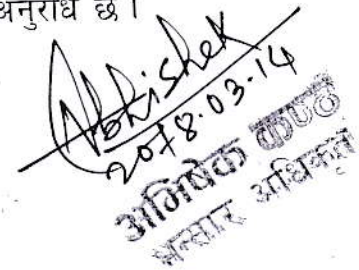 अनुरोध छ।
Abhishek
2078.03.14
अभिषेक कण्ठ
भन्सार अधिकृत